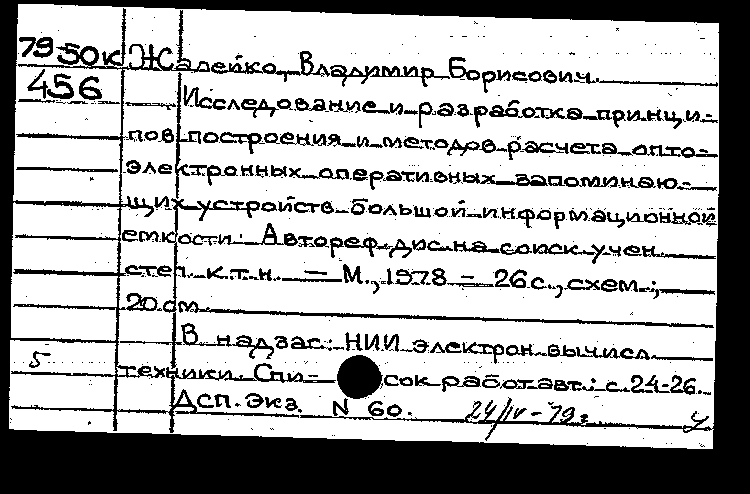 79-50к Жалейко, Владимир Борисович.
456 Исследование и разработка принци-
пов построения и методов расчета опто-
электронных оперативных запоминаю-
щих устройств большой информационной
емкости. Автореф. дис. на соиск. учен.
степ. к.т.н. — М., 1978 — 26 с., схем.;
20 см.
В надзаг.: НИИ электрон. вычисл.
5 техники. Спи- сок работ авт.: с. 24-26.
ДСП. Экз. N 60. 24/IV-79г.